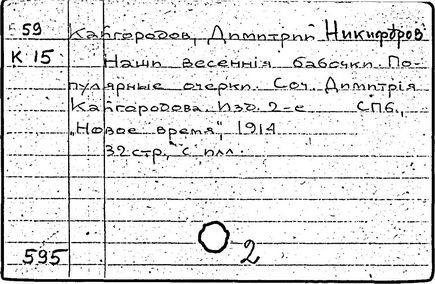 59 Кайгородов, Димитрий Никифоров
К 15 Наши весеннія бабочки. По-
пулярные очерки. Соч. Димитрія
Кайгородова. Изд. 2-е СПб.,
„Новое время“, 1914
32 стр., с илл.
595 2